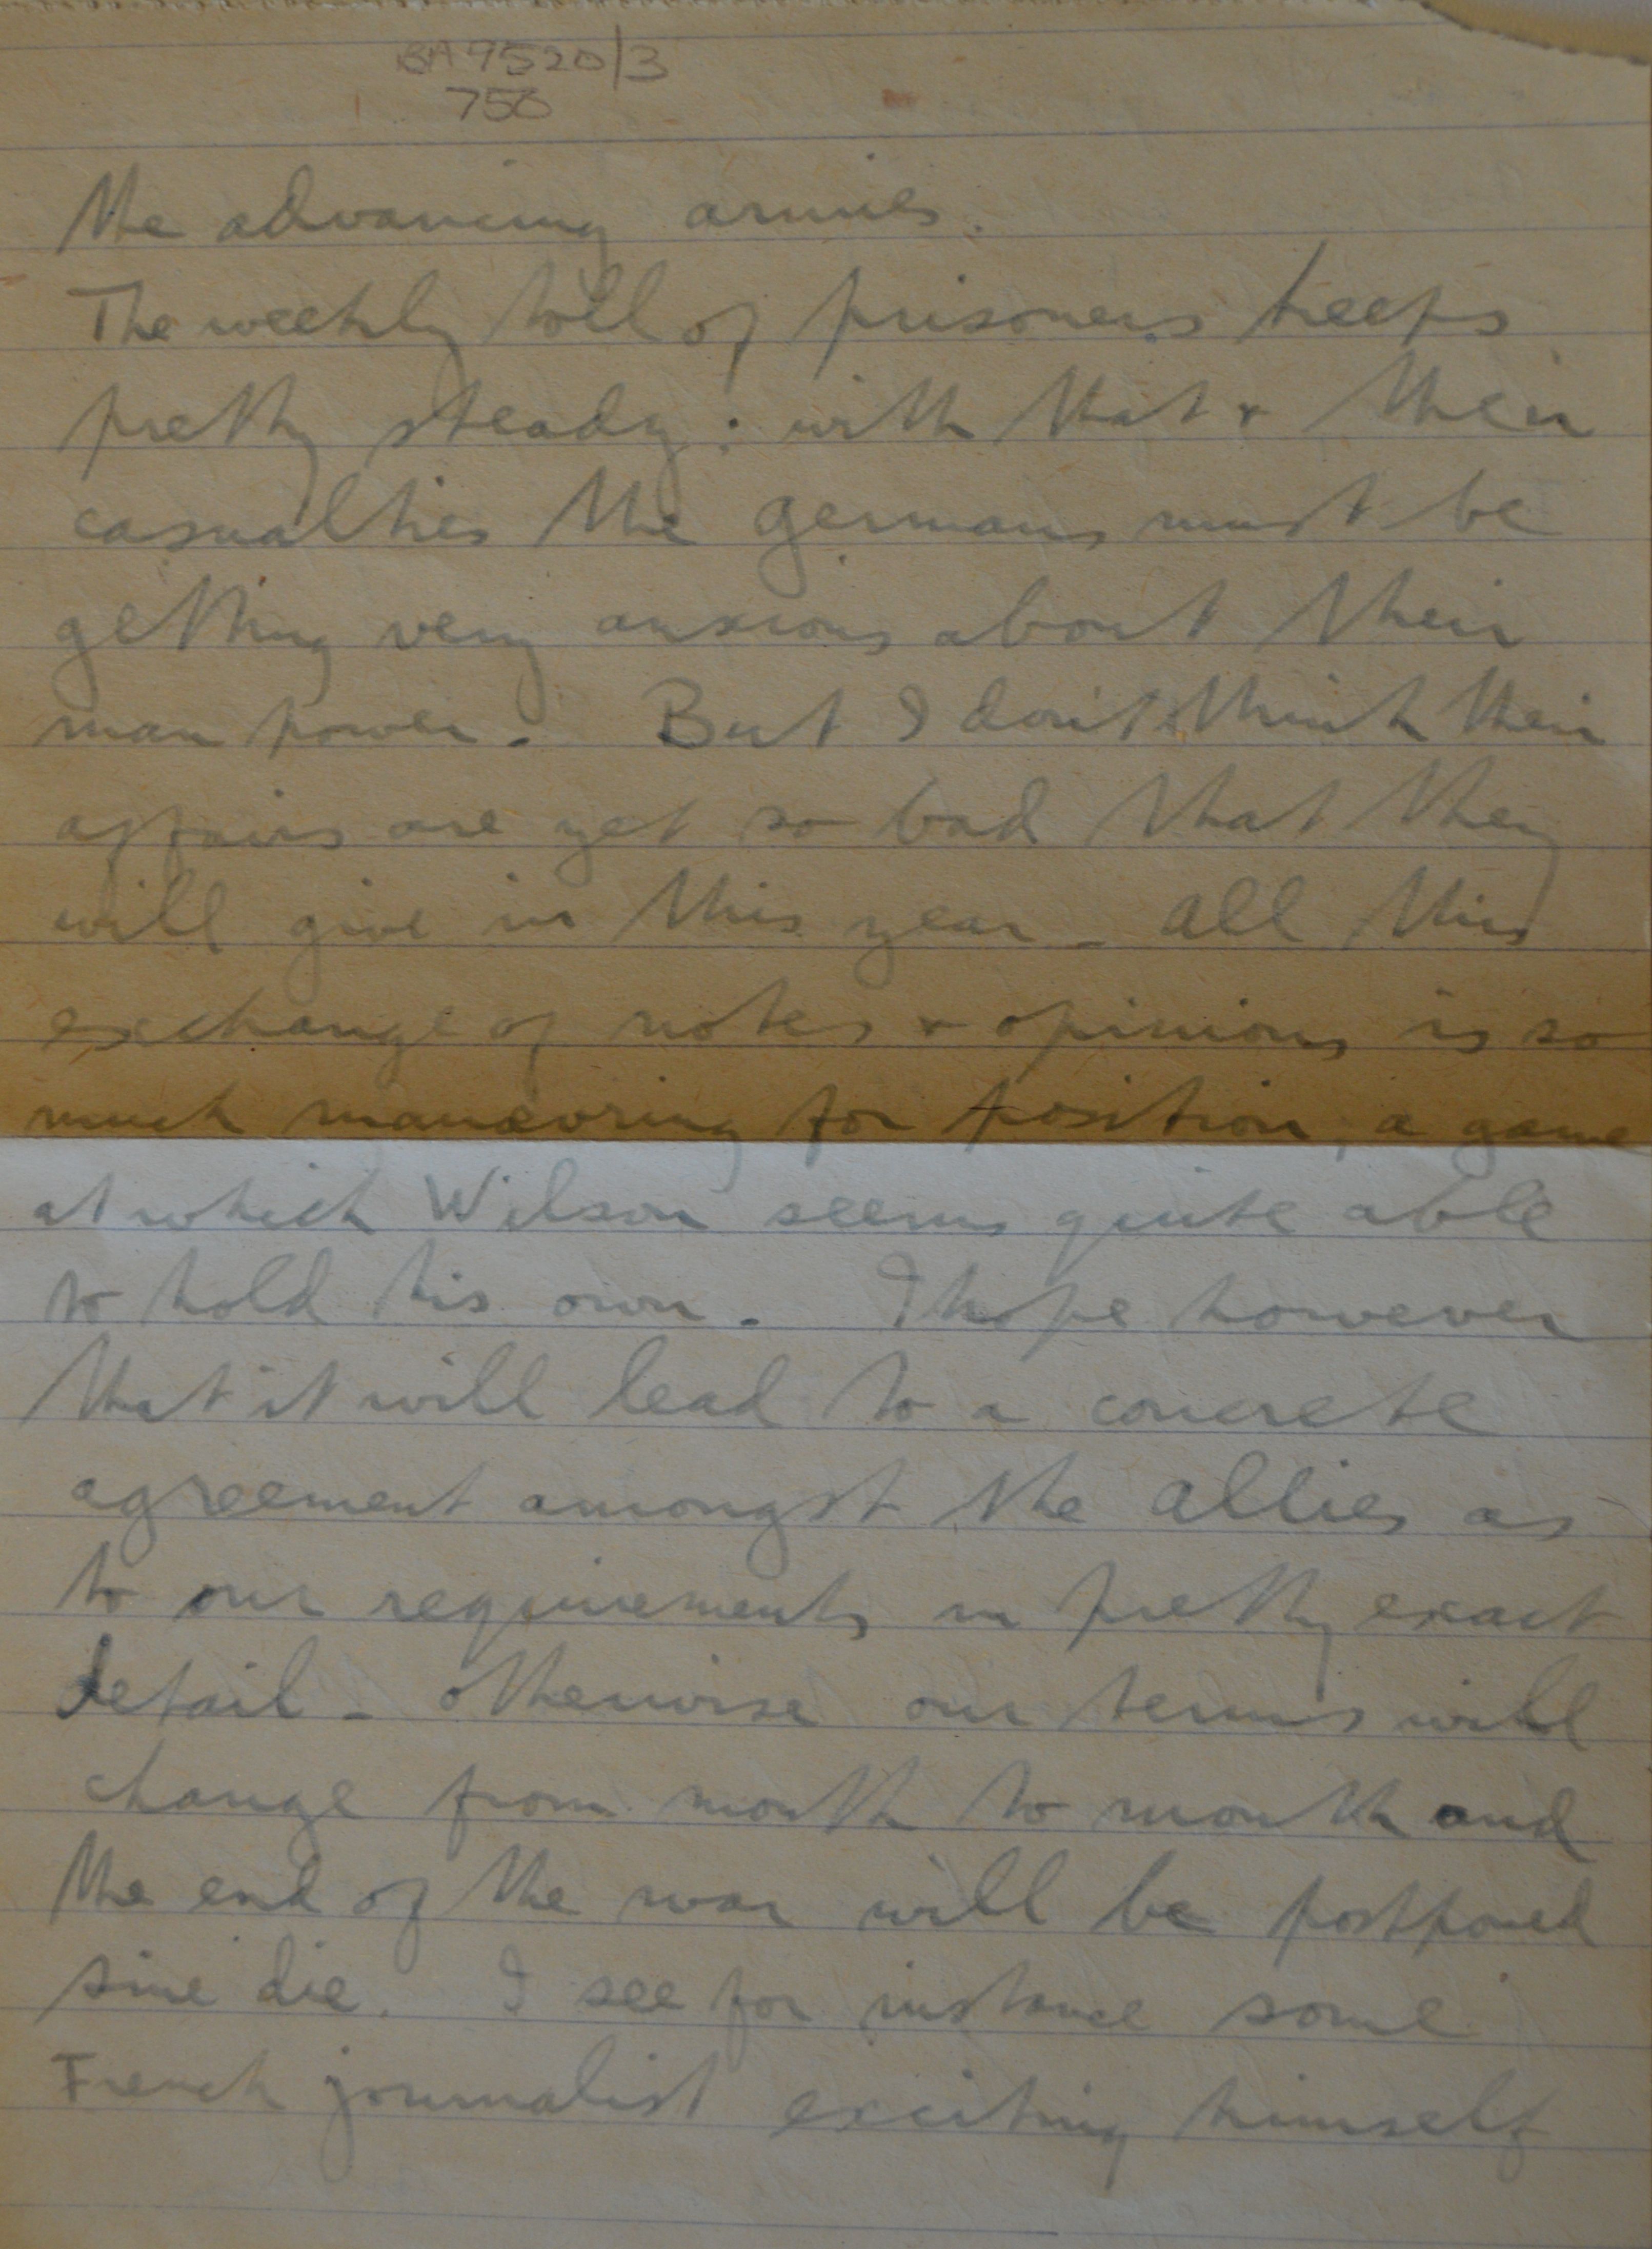 BA 9520/3
756
the advancing armies.
The weekly toll of prisoners keeps
pretty steady: with that & their
casualties the Germans must be
getting very anxious about their
man power. But I don't think their
affairs are yet so bad that they
will give in this year - all this
exchange of notes & opinions is so
much manoevring for position, a game
at which Wilson seems quite able
to hold his own. I hope however
that it will lead to a concrete
agreement amongst the allies as
to our requirements in pretty exact
detail - otherwise our terms will
change from month to month and
the end of the war will be postponed
sine die. I see for instance some
French journalist exciting himself